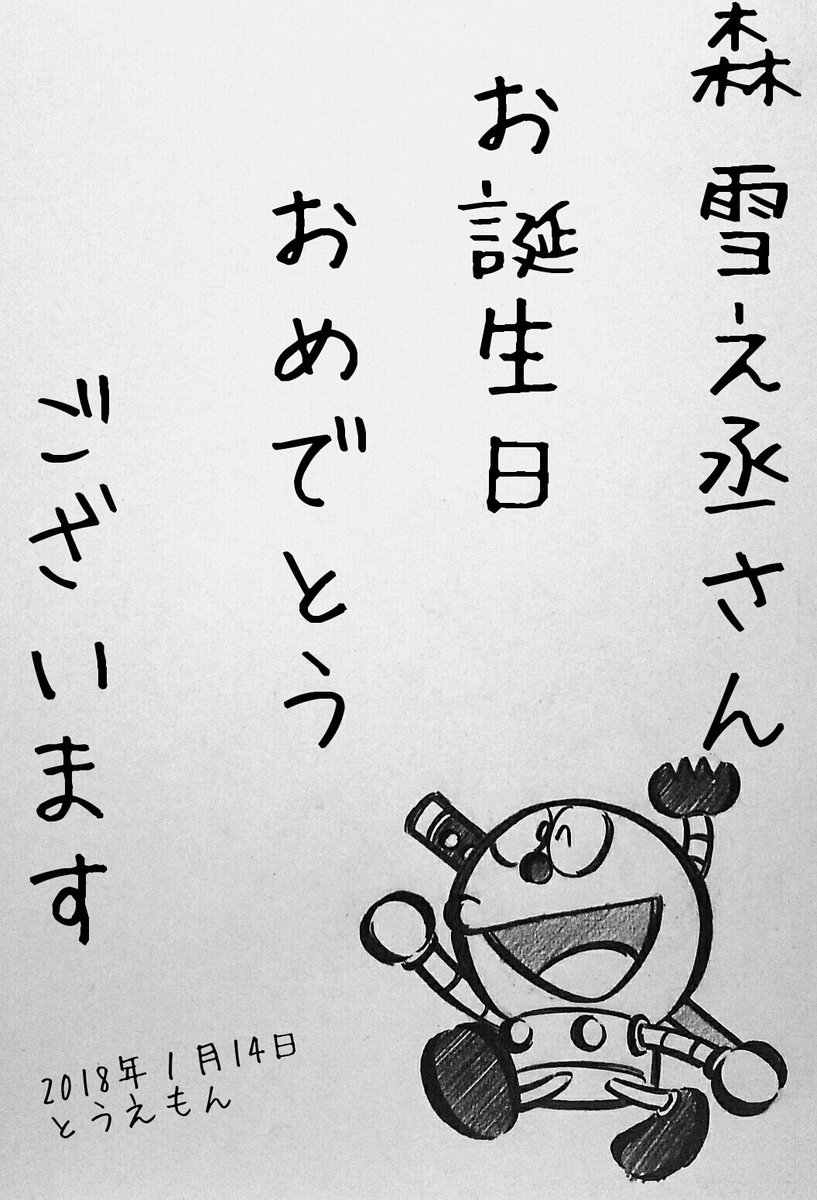 森 雪え丞さん
お誕生日
おめでとう
ございます
2018年1月14日
とうえもん